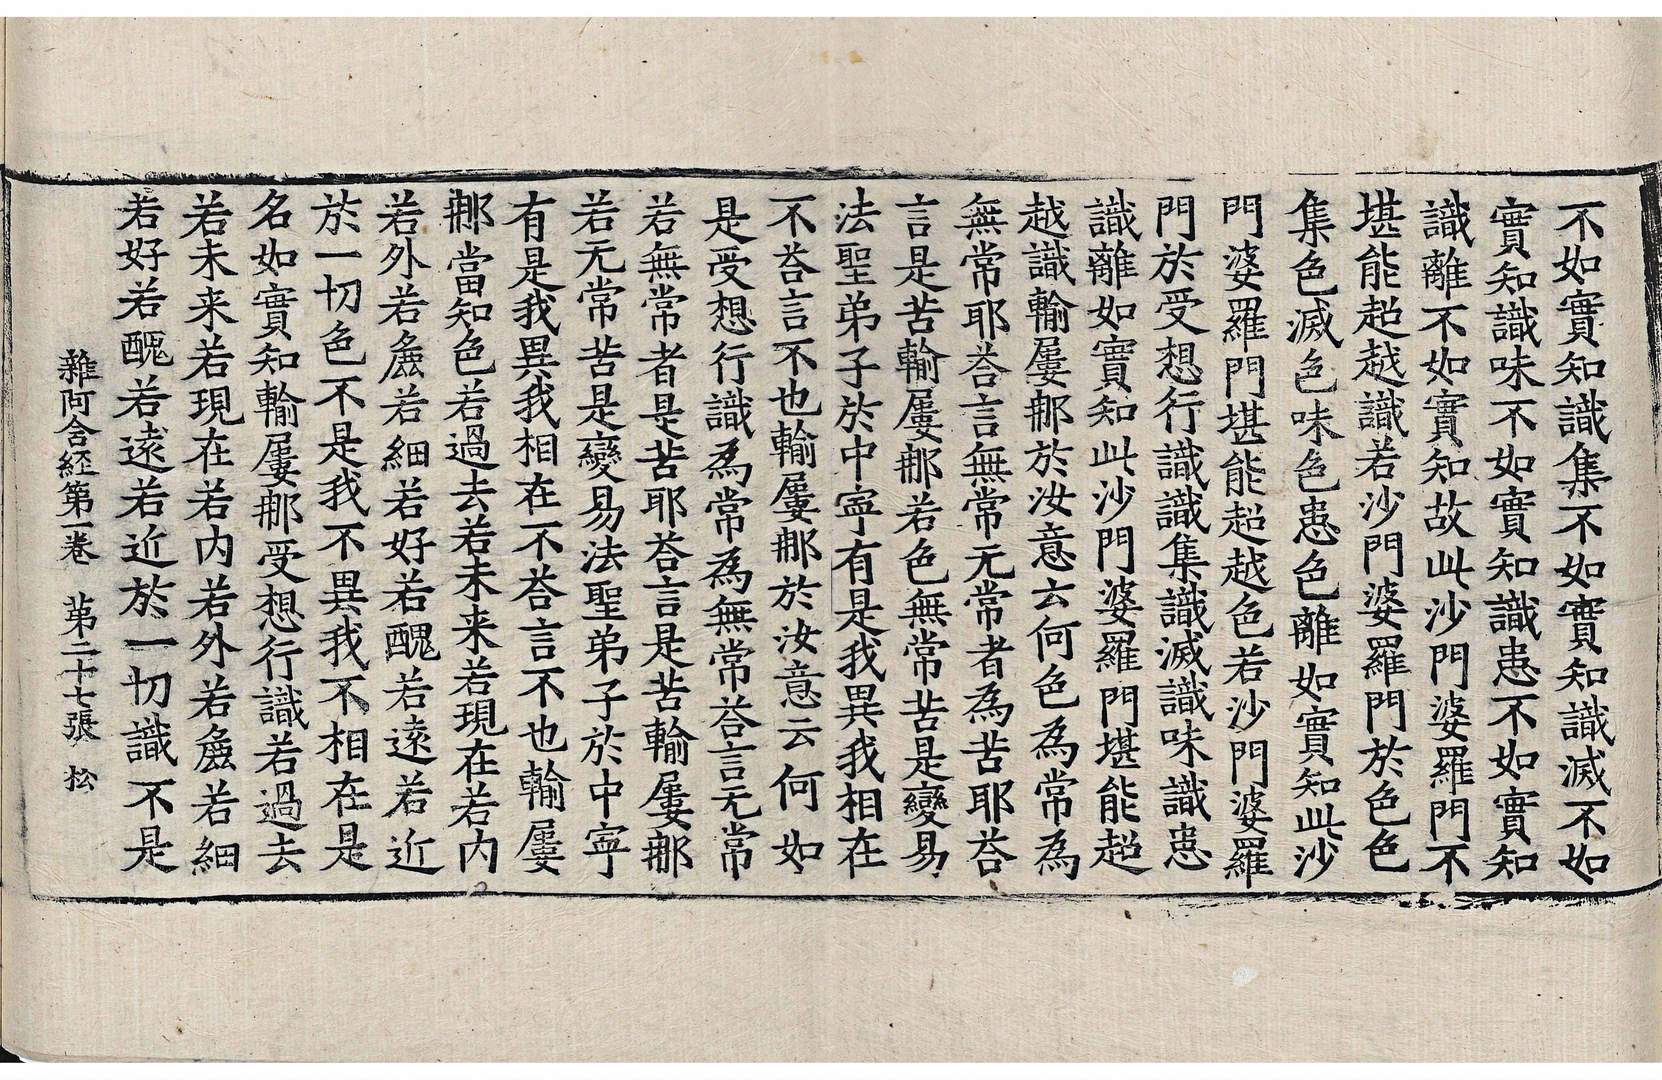 不如實知識集不如實知識滅不如
實知識味不如實知識患不如實知
識離不如實知故此沙門婆羅門不
堪能超越識若沙門婆羅門於色色
集色滅色味色患色離如實知此沙
門婆羅門堪能超越色若沙門婆羅
門於受想行識識集識滅識味識患
識離如實知此沙門婆羅門堪能超
越識輸屢那於汝意云何色為常為
無常耶荅言無常无常者為苦耶荅
言是苦輸屢那若色無常苦是變易
法聖弟子於中寧有是我異我相在
不荅言不也輸屢那於汝意云何如
是受想行識為常為無常荅言无常
若無常者是苦耶荅言是苦輸屢那
若无常苦是變易法聖弟子於中寧
有是我異我相在不荅言不也輸屢
那當知色若過去若未来若現在若內
若外若麁若細若好若醜若遠若近
於一切色不是我不異我不相在是
名如實知輸屢那受想行識若過去
若未来若現在若內若外若麁若細
若好若醜若遠若近於一切識不是
雜阿含経第一卷 第二十七張 松